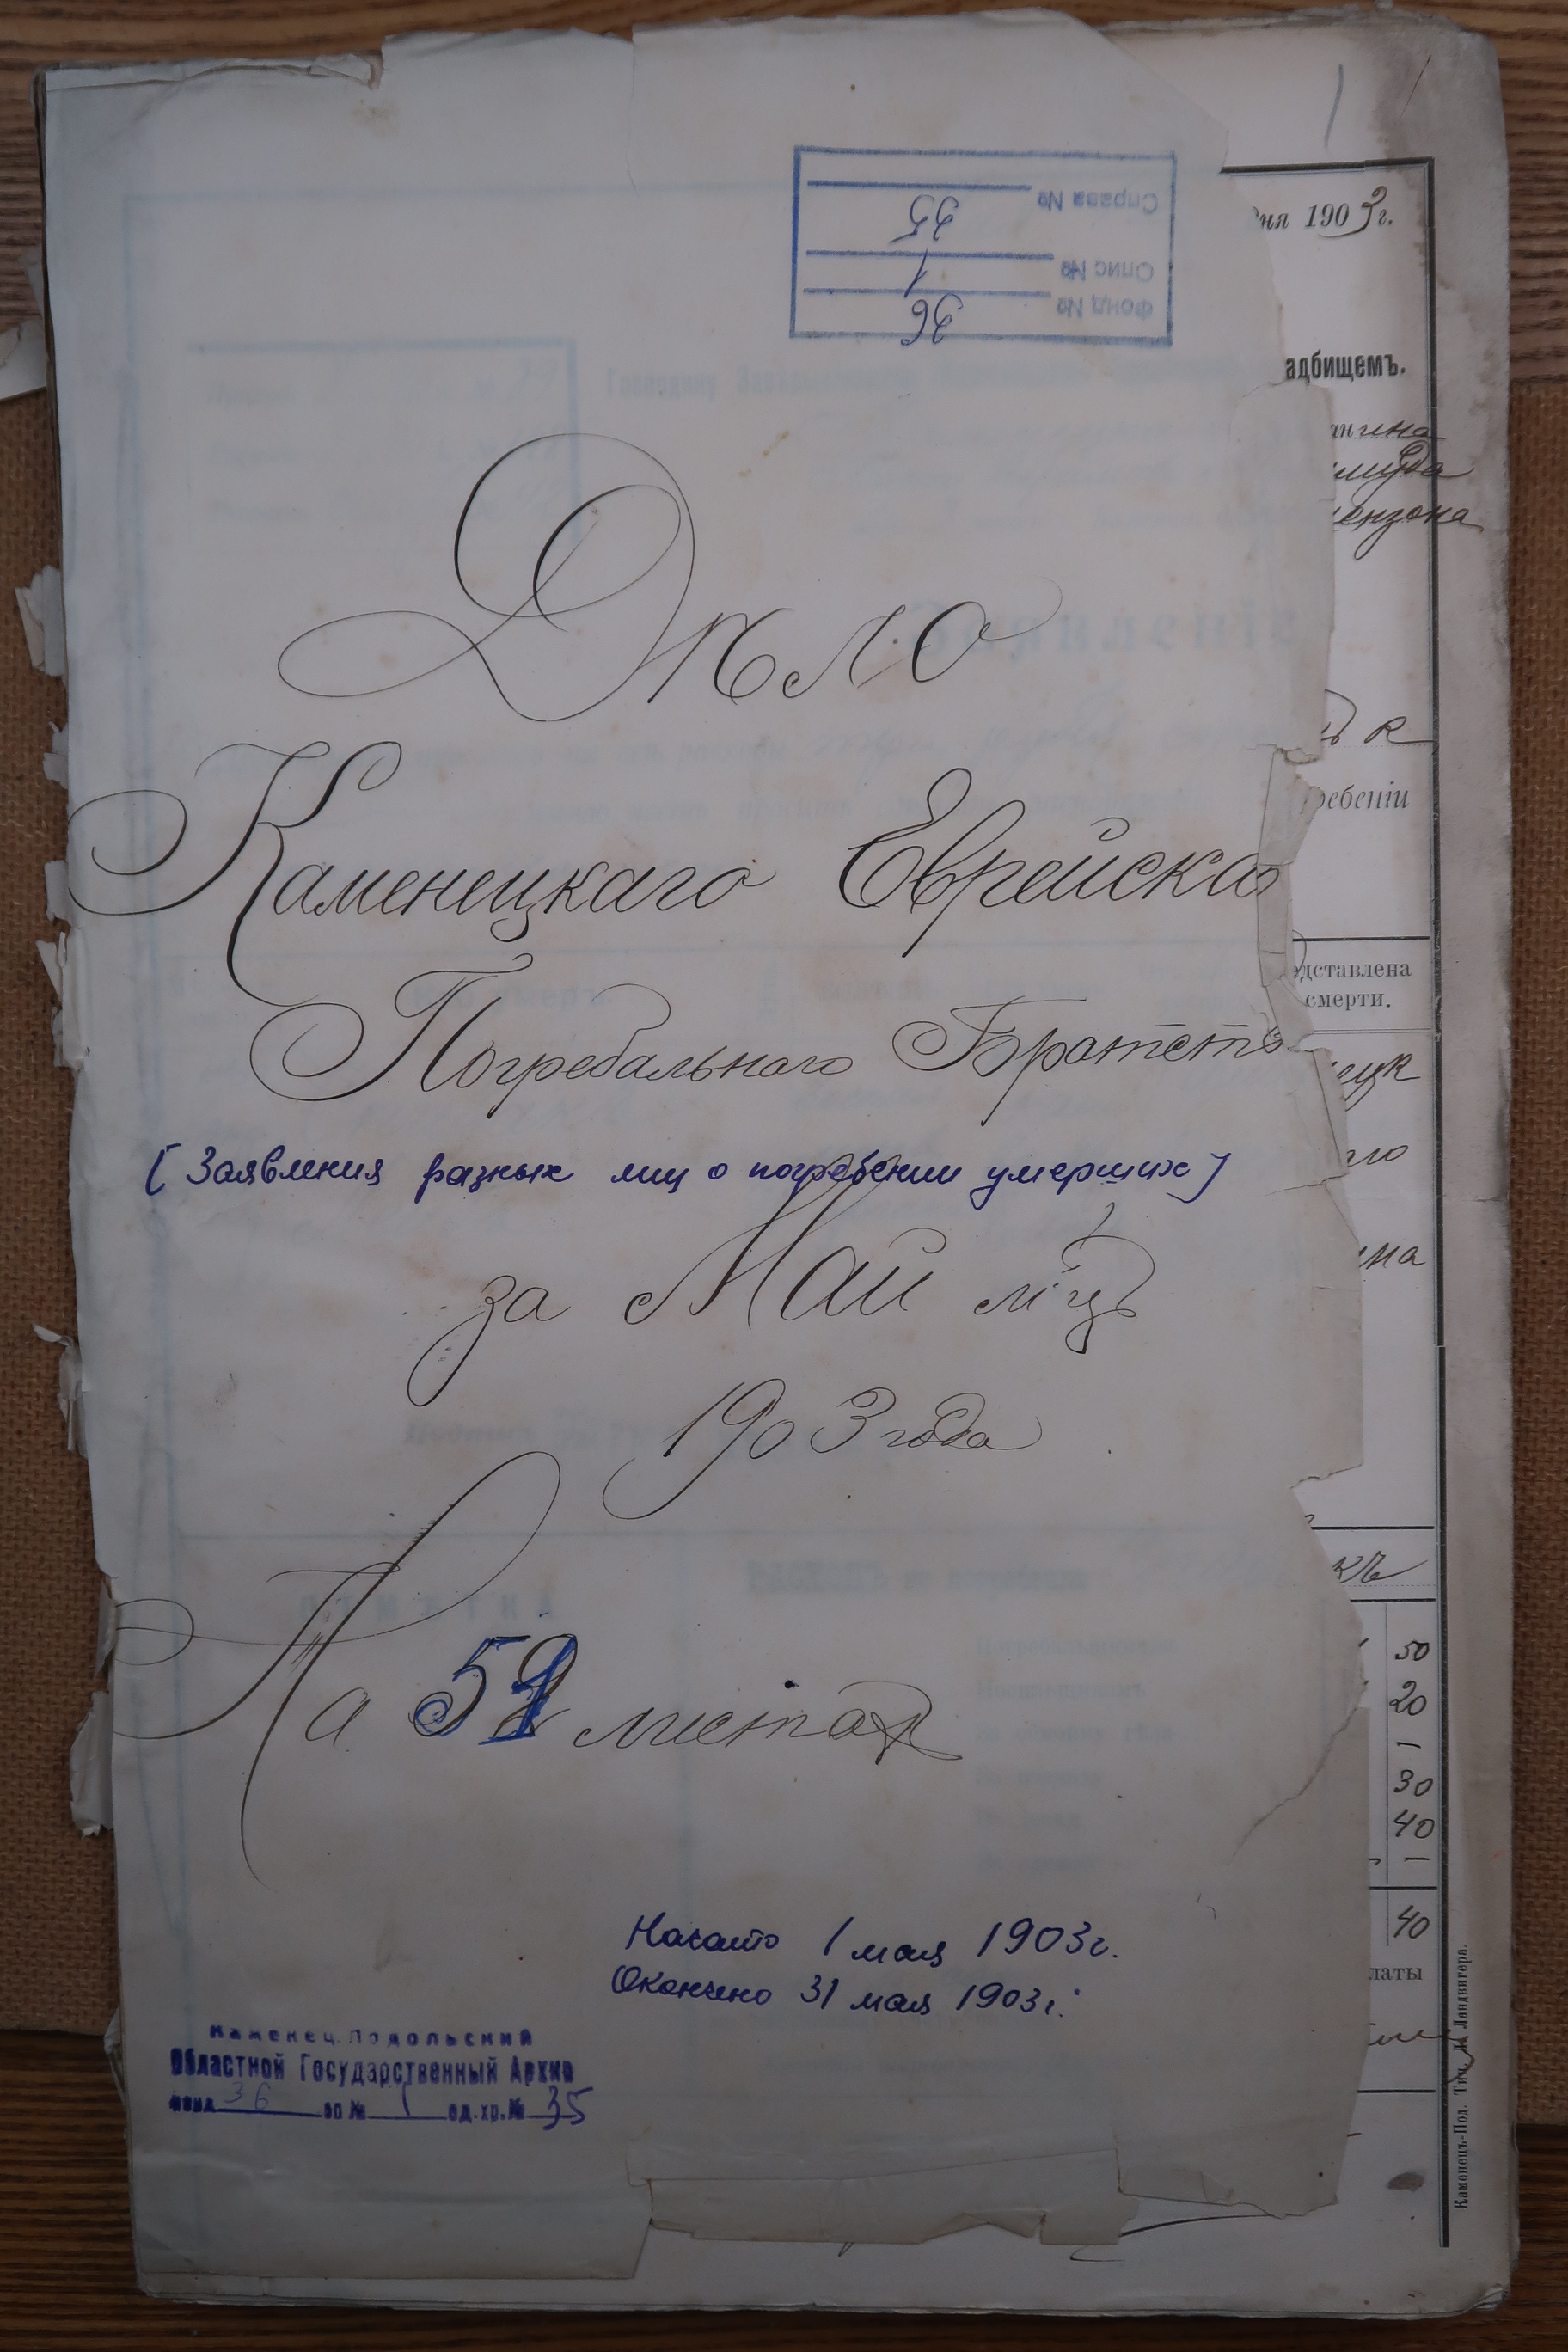 Справа № 35
Опис № 1
Фонд № 36
1903 г.
адбищемъ.
Дѣло
Каменецкаго Еврейска
ребеніи
Погребальнаго Братств
дставлена
смерти.
(Заявления разных лиц о погребении умерших)
за Май м-цъ
1903 года
На 51 листах
50
20
30
40
40
латы
Начато 1 мая 1903 г.
Окончено 31 мая 1903 г.
Каменец-Подольский
Областной Государственный Архив
фонд 36 оп № 1 ед. хр. № 35
Каменецъ-Под. Тип. Ландвигера.